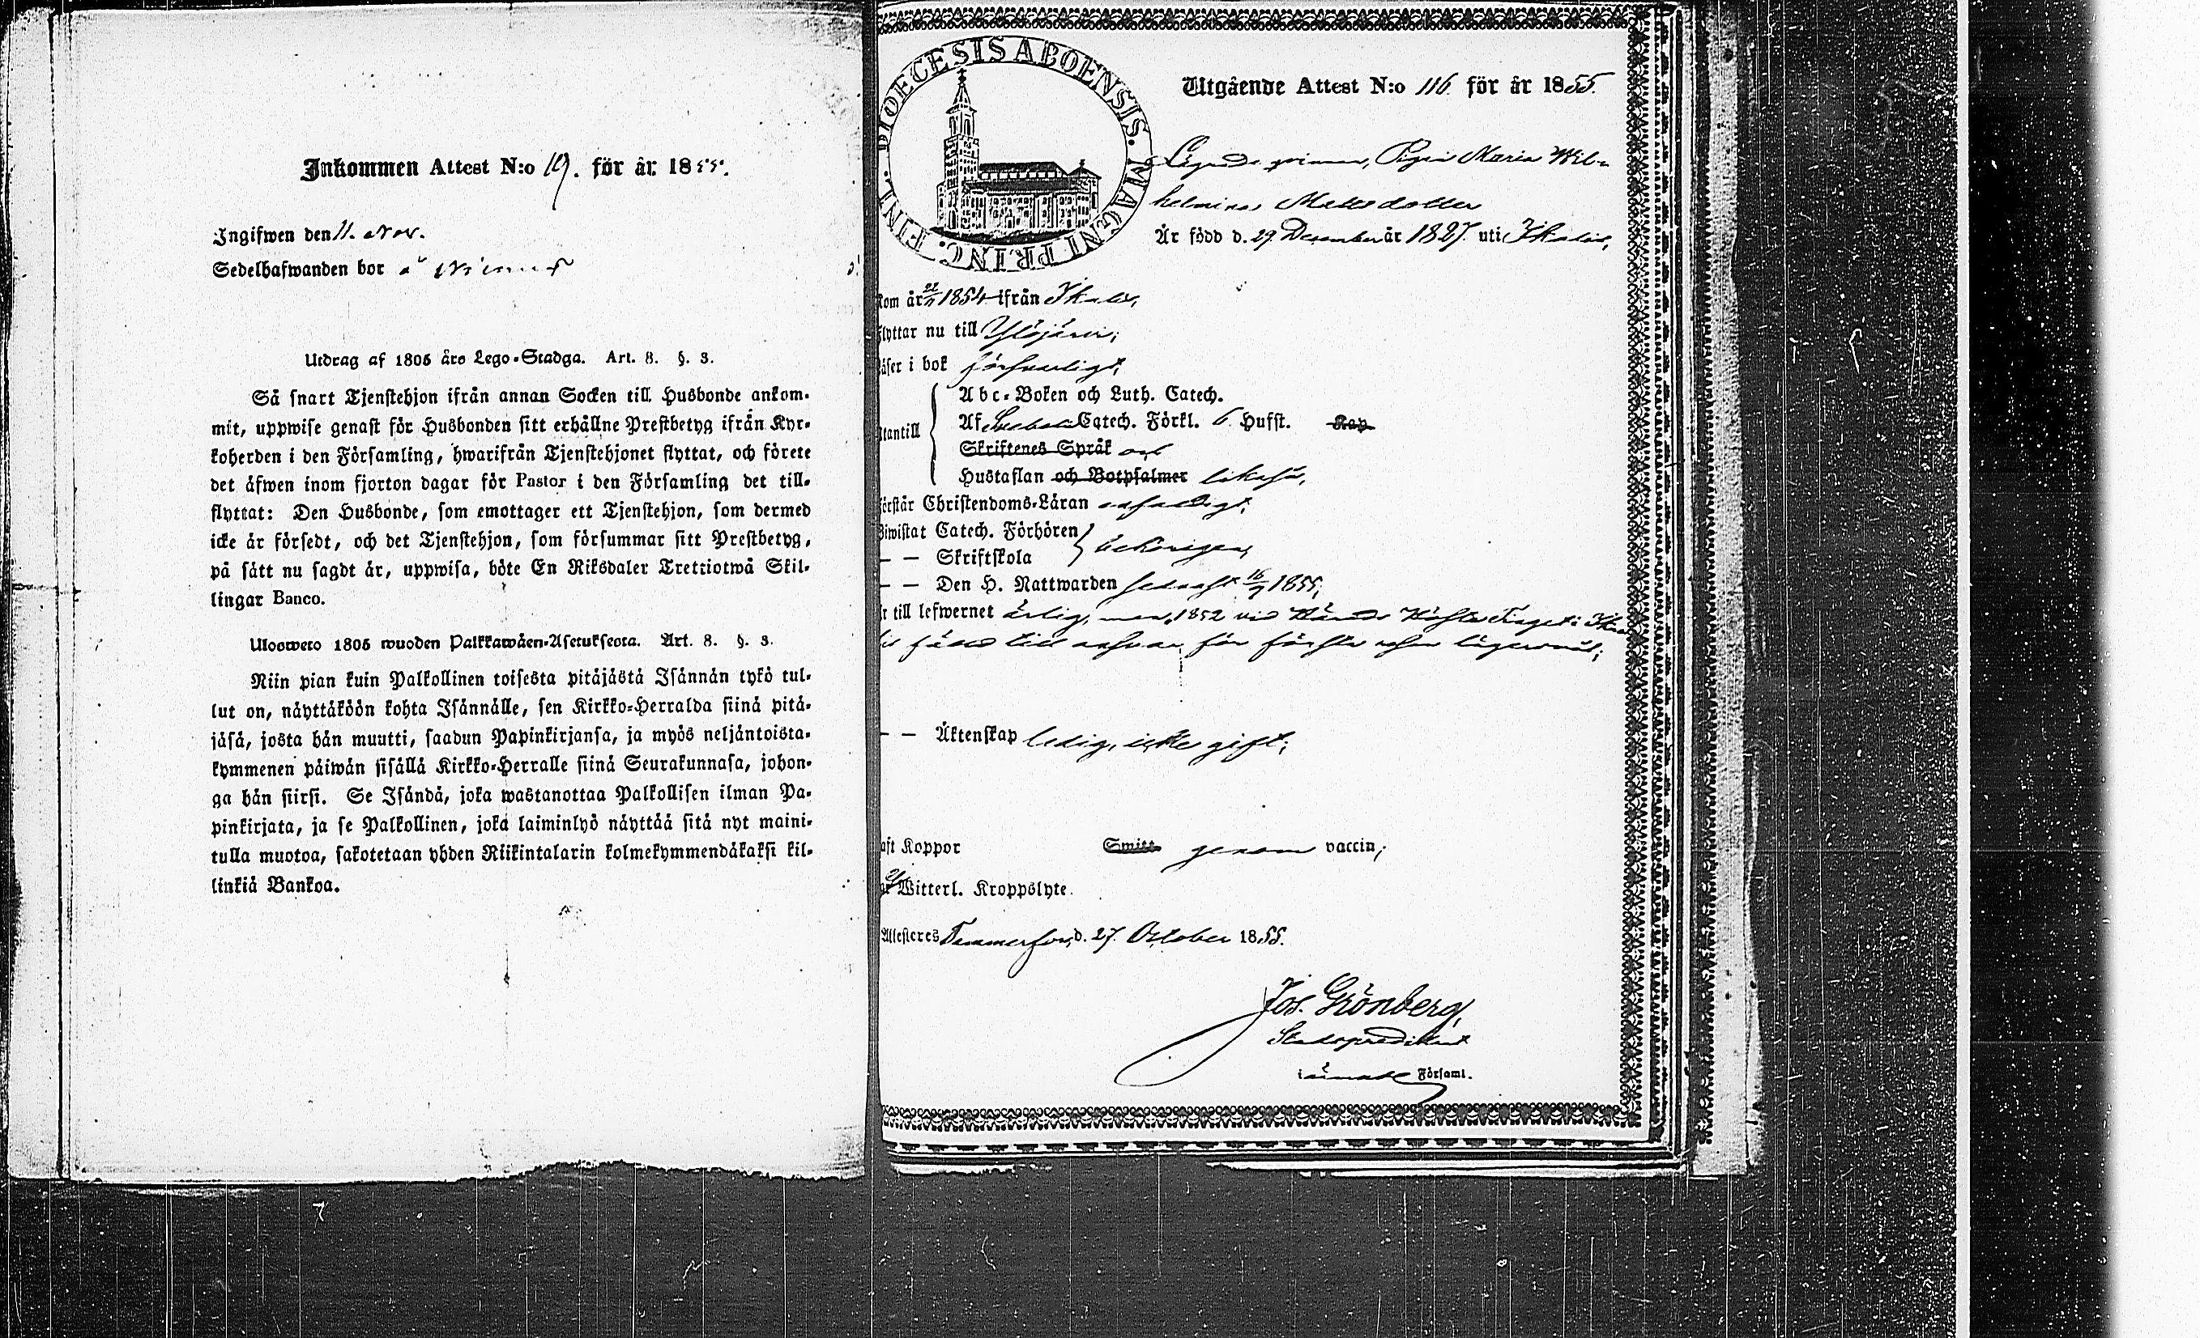 Inkommen Attest N:o 19. för år 1855.
Ingifwen den 11. Nov.
Sedelhafwanden bor å
Utdrag af 1805 års Lego-Stadga. Art. 8. §. 3.
Så snart Tjenstehjon ifrån annan Socken till Husbonde ankom-
mit, uppwise genast för Husbonden sitt erhållne Prestbetyg ifrån Kyr-
koherden i den Församling, hwarifrån Tjenstehjonet flyttat, och förete
det äfwen inom fjorton dagar för Pastor i den Församling det till-
flyttat: Den Husbonde, som emottager ett Tjenstehjon, som dermed
icke är försedt, och det Tjenstehjon, som försummar sitt Prestbetyg,
på sätt nu sagdt är, uppwisa, böte En Riksdaler Trettiotwå Skil-
lingar Banco.
Ulosweto 1805 wuoden Palkkawäen-Asetuksesta. Art. 8. §. 3.
Niin pian kuin Palkollinen toisesta pitäjästä Isännän tykö tul-
lut on, näyttäköön kohta Isännälle, sen Kirkko-Herralda siinä pitä-
jäsä, josta hän muutti, saadun Papinkirjansa, ja myös neljäntoista-
kymmenen päiwän sisällä Kirkko-Herralle siinä Seurakunnasa, johon-
ga hän siirsi. Se Isändä, joka wastanottaa Palkollisen ilman Pa-
pinkirjata, ja se Palkollinen, joka laiminlyö näyttää sitä nyt maini-
tulla muotoa, sakotetaan yhden Riikintalarin kolmekymmendäkaksi kil-
linkiä Bankoa.
DIOECESIS ABOENSIS. MAGNI PRINC. FINL.
Utgående Attest N:o 116 för år 1855.
Maria Wil-
helmina Mattsdotter
Är född d. 29 December år 1827. uti Ikalis,
kom år 22/11 1854 ifrån Ikalis,
flyttar nu till Ylöjärvi;
läser i bok försvarligt;
Utantill
Abc-Boken och Luth. Catech.
Af Svebelii Catech. Förkl. 6 Hufst. Kap.
Skriftenes Språk och
Hustaflan och Botpsalmer likaså,
förstår Christendoms-Läran enfaldigt;
Biwistat Catech. Förhören
— — Skriftskola
behörigen,
— — Den H. Nattwarden sednast 16/9 1855;
är till lefwernet ärlig, men 1852 vid Härads Höste Tinget i Ika-
lis fälld till ansvar för första resan lägersmål;
— — Äktenskap ledig, icke gift;
haft Koppor Smitt genom vaccin;
Witterl. Kroppslyte.
Attesteres Tammerfors d. 27. October 1855.
Jos. Grönberg,
Stadspredikant
i Församl.